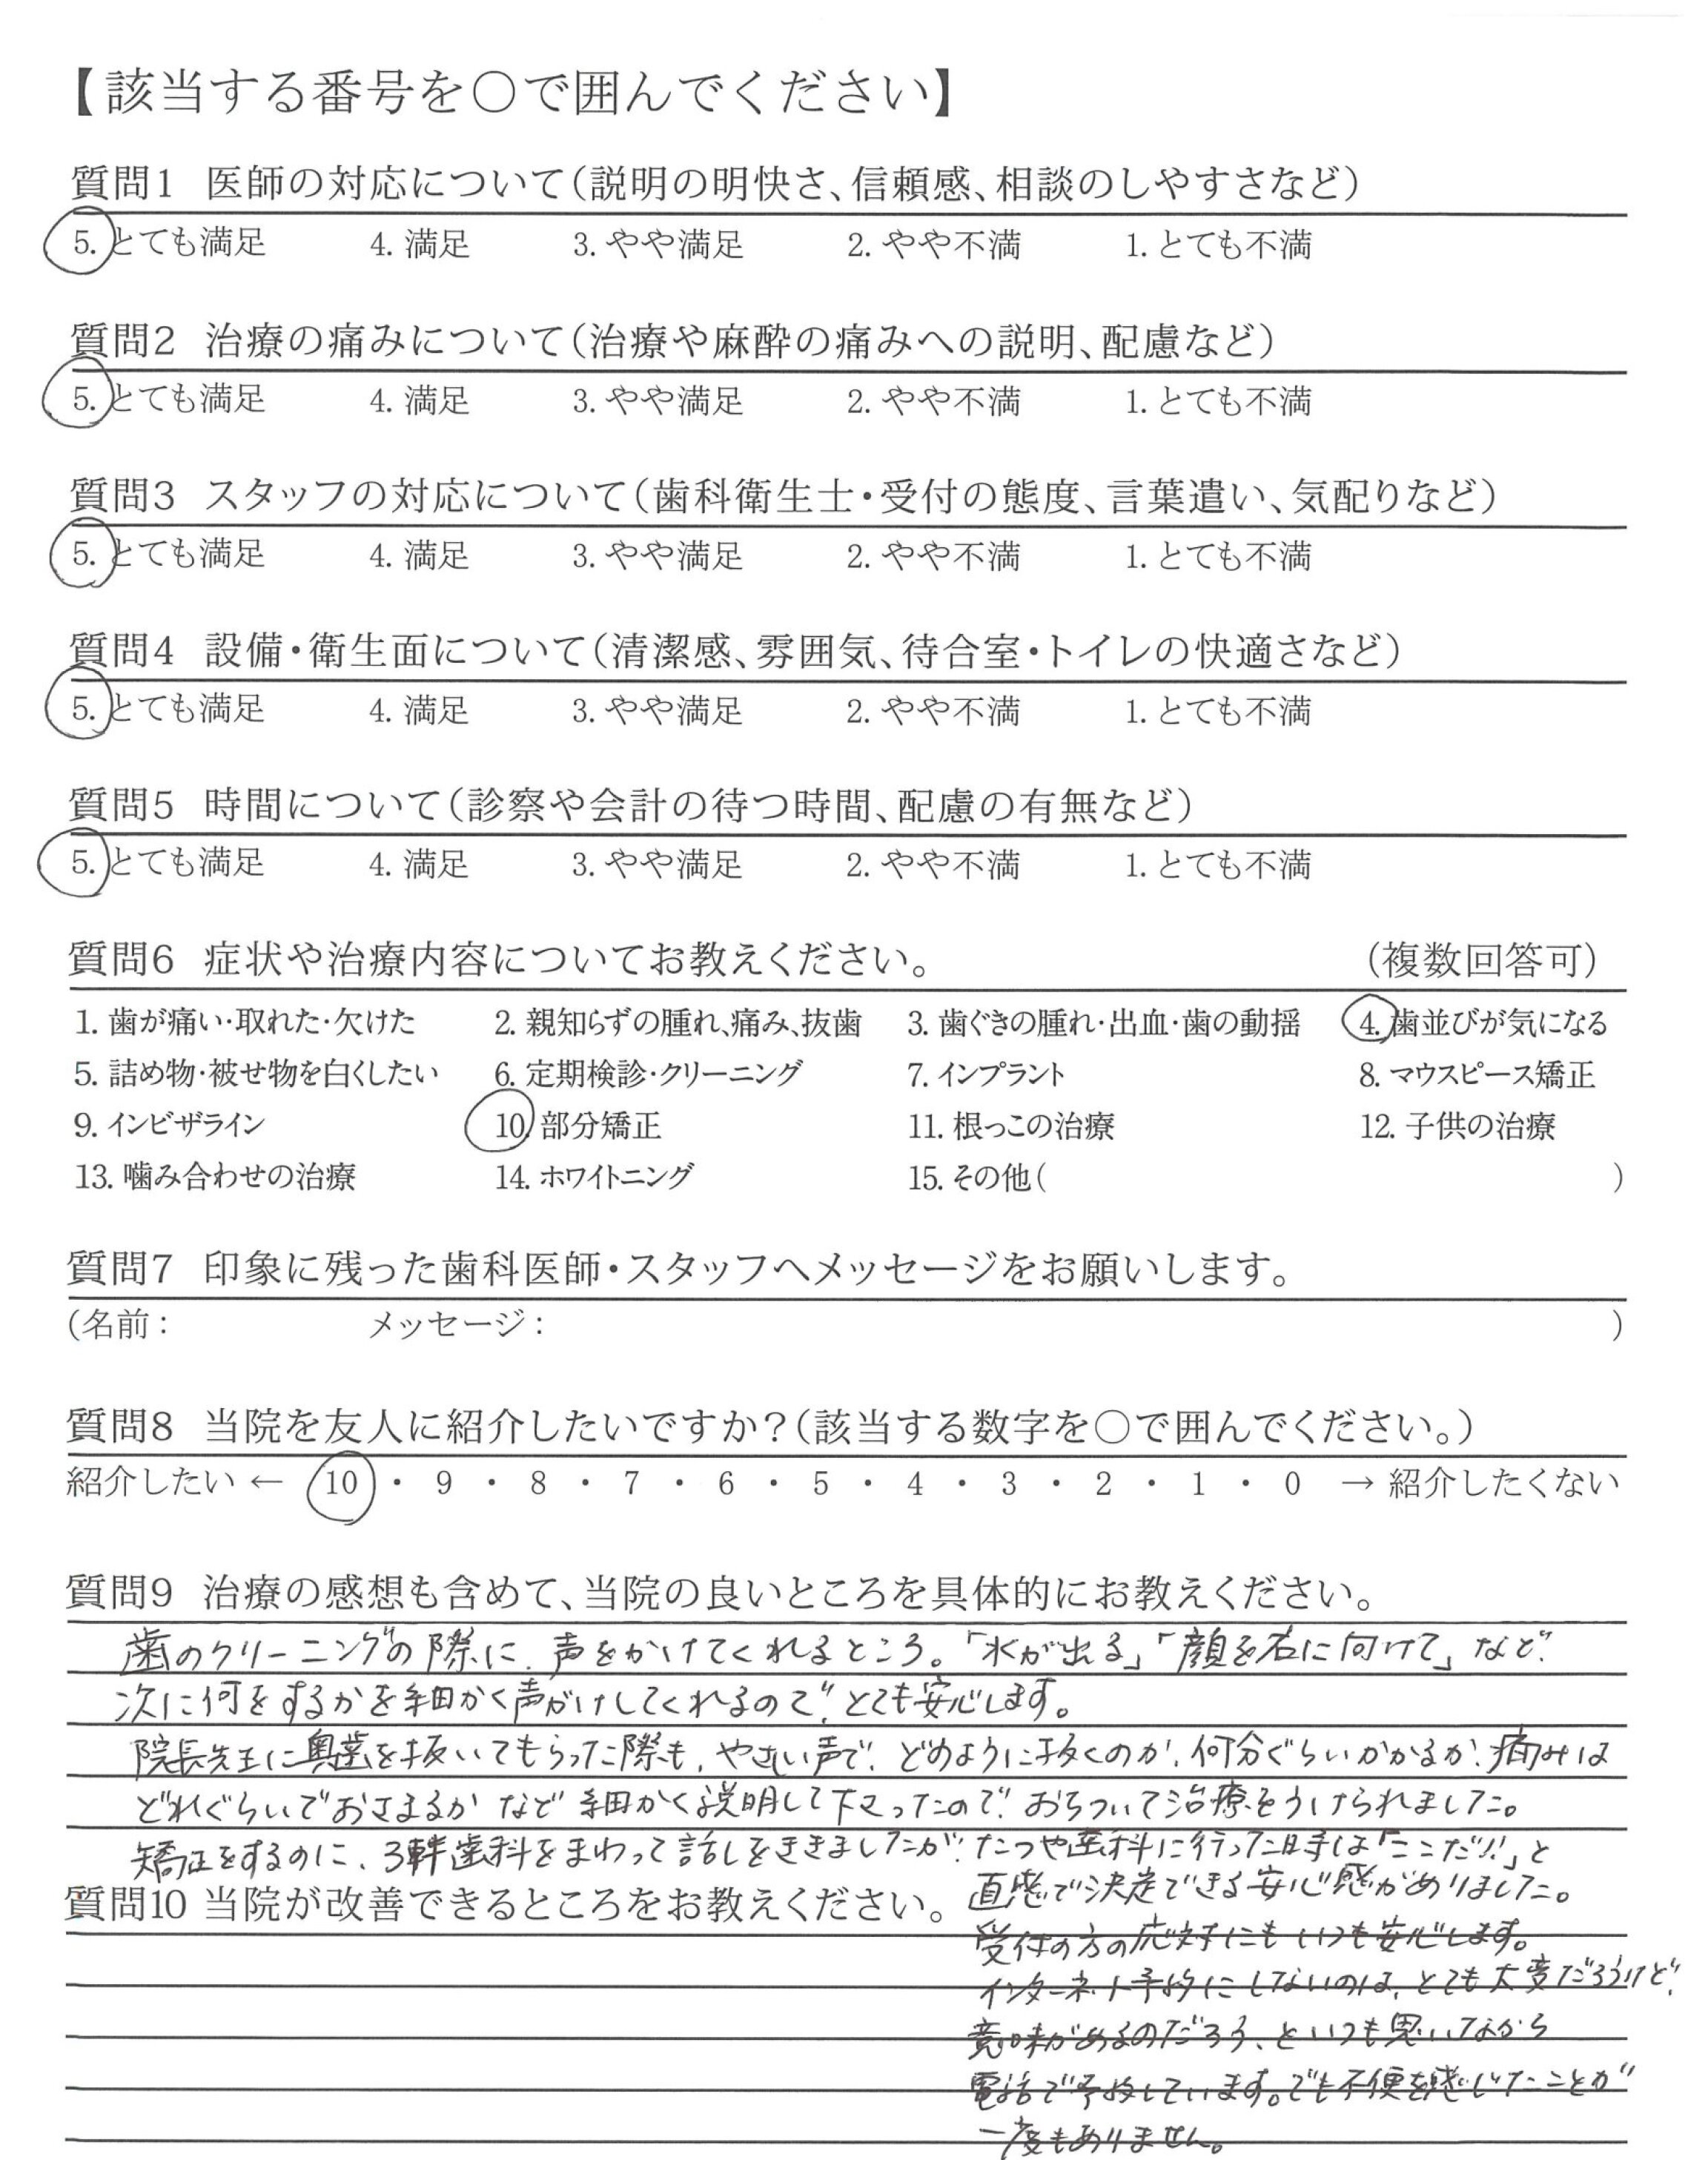 【該当する番号を○で囲んでください】
質問1 医師の対応について(説明の明快さ、信頼感、相談のしやすさなど)
5. とても満足 4. 満足 3. やや満足 2. やや不満 1. とても不満
質問2 治療の痛みについて(治療や麻酔の痛みへの説明、配慮など)
5. とても満足 4. 満足 3. やや満足 2. やや不満 1. とても不満
質問3 スタッフの対応について(歯科衛生士・受付の態度、言葉遣い、気配りなど)
5. とても満足 4. 満足 3. やや満足 2. やや不満 1. とても不満
質問4 設備・衛生面について(清潔感、雰囲気、待合室・トイレの快適さなど)
5. とても満足 4. 満足 3. やや満足 2. やや不満 1. とても不満
質問5 時間について(診察や会計の待つ時間、配慮の有無など)
5. とても満足 4. 満足 3. やや満足 2. やや不満 1. とても不満
質問6 症状や治療内容についてお教えください。 (複数回答可)
1. 歯が痛い・取れた・欠けた 2. 親知らずの腫れ、痛み、抜歯 3. 歯ぐきの腫れ・出血・歯の動揺 4. 歯並びが気になる
5. 詰め物・被せ物を白くしたい 6. 定期検診・クリーニング 7. インプラント 8. マウスピース矯正
9. インビザライン 10. 部分矯正 11. 根っこの治療 12. 子供の治療
13. 噛み合わせの治療 14. ホワイトニング 15. その他( )
質問7 印象に残った歯科医師・スタッフへメッセージをお願いします。
(名前: メッセージ: )
質問8 当院を友人に紹介したいですか?(該当する数字を○で囲んでください。)
紹介したい ← 10 ・ 9 ・ 8 ・ 7 ・ 6 ・ 5 ・ 4 ・ 3 ・ 2 ・ 1 ・ 0 → 紹介したくない
質問9 治療の感想も含めて、当院の良いところを具体的にお教えください。
歯のクリーニングの際に、声をかけてくれるところ。「水が出る」「顔を右に向けて」など、
次に何をするかを細かく声がけしてくれるので、とても安心します。
院長先生に奥歯を抜いてもらった際も、やさしい声で、どのように抜くのか、何分ぐらいかかるか、痛みは
どれぐらいでおさまるか など 細かく説明して下さったので、おちついて治療をうけられました。
矯正をするのに、3軒歯科をまわって話しをききましたが、たつや歯科に行った時は「ここだ!!」と
直感で決定できる安心感がありました。
質問10 当院が改善できるところをお教えください。
受付の方の応対にもいつも安心します。
インターネット予約にしないのは、とても大変だろうけど、
意味があるのだろう、といつも思いながら
電話で予約しています。でも不便を感じたことが
一度もありません。